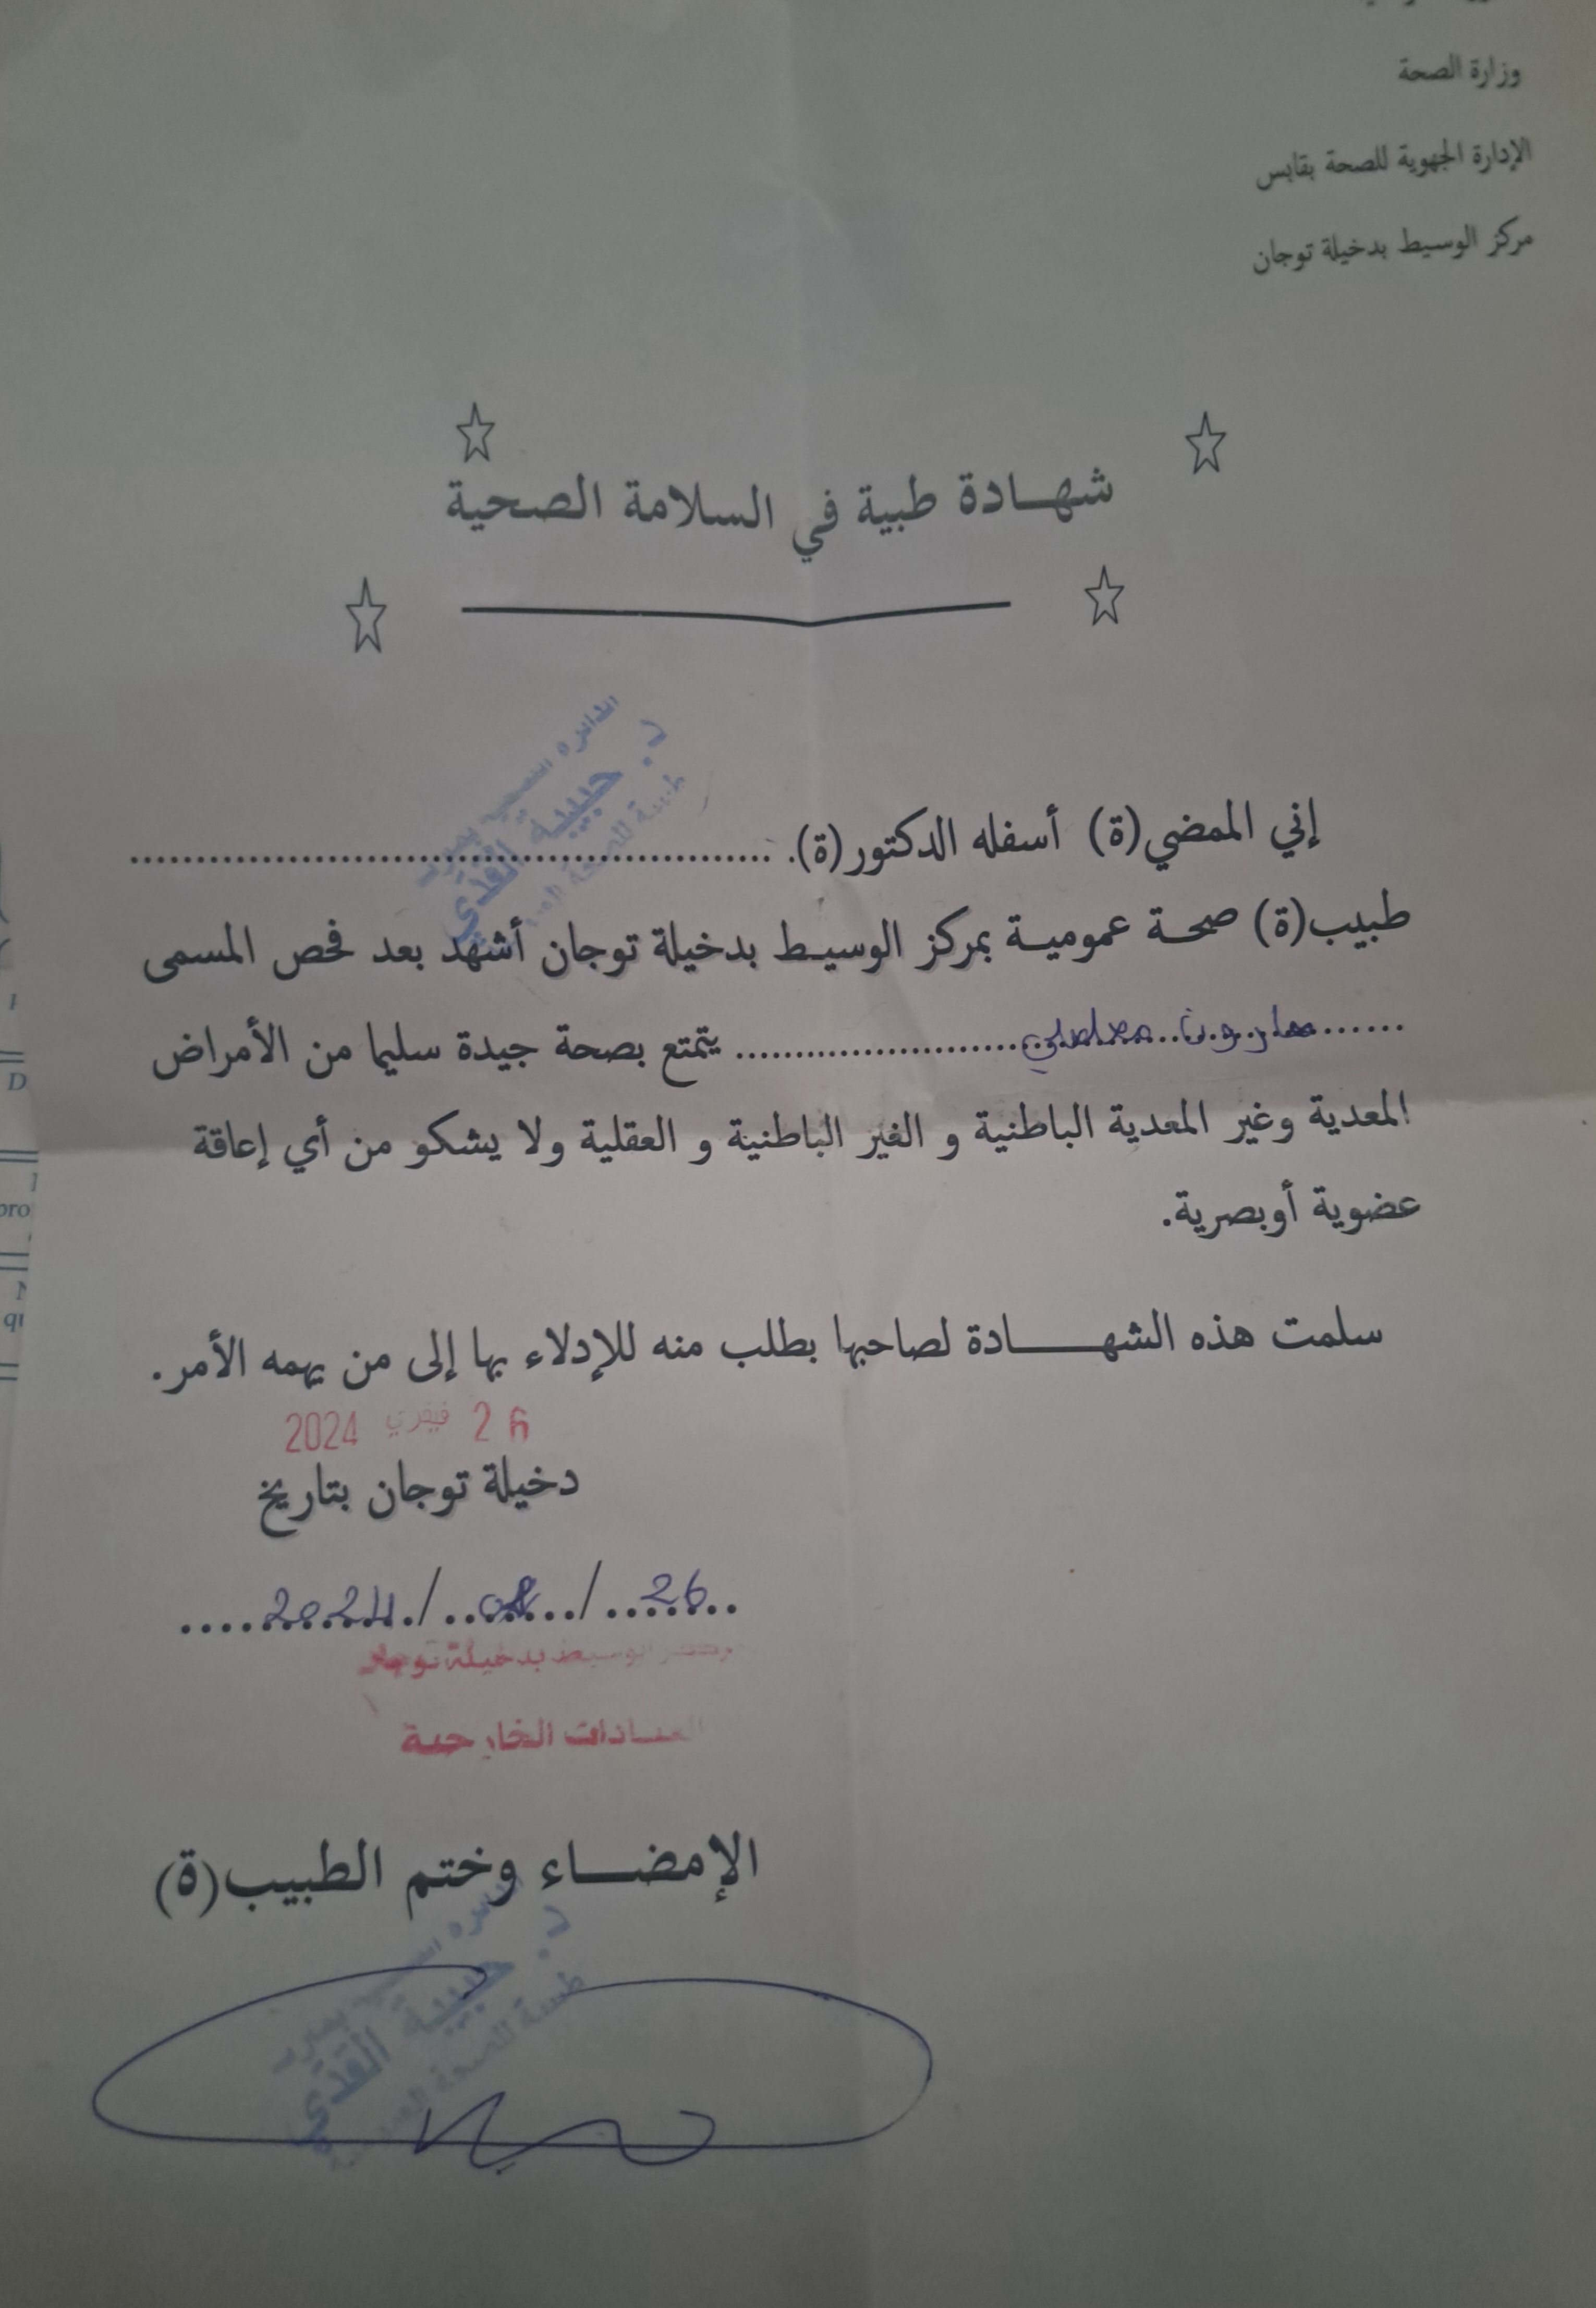 وزارة الصحة
الإدارة الجهوية للصحة بقابس
مركز الوسيط بدخيلة توجان
شهادة طبية في السلامة الصحية
د. حبيبة القذي
إني الممضي(ة) أسفله الدكتور(ة). ..........
طبيب(ة) صحة عمومية بمركز الوسيط بدخيلة توجان أشهد بعد فحص المسمى
....... هارون .......... يتمتع بصحة جيدة سليما من الأمراض
المعدية وغير المعدية الباطنية و الغير الباطنية و العقلية ولا يشكو من أي إعاقة
عضوية أوبصرية.
سلمت هذه الشهادة لصاحبها بطلب منه للإدلاء بها إلى من يهمه الأمر.
26 فيفري 2024
دخيلة توجان بتاريخ
26/02/2024
الوسيط بدخيلة توجان
العيادات الخارجية
الإمضاء وختم الطبيب(ة)
د. حبيبة القذي